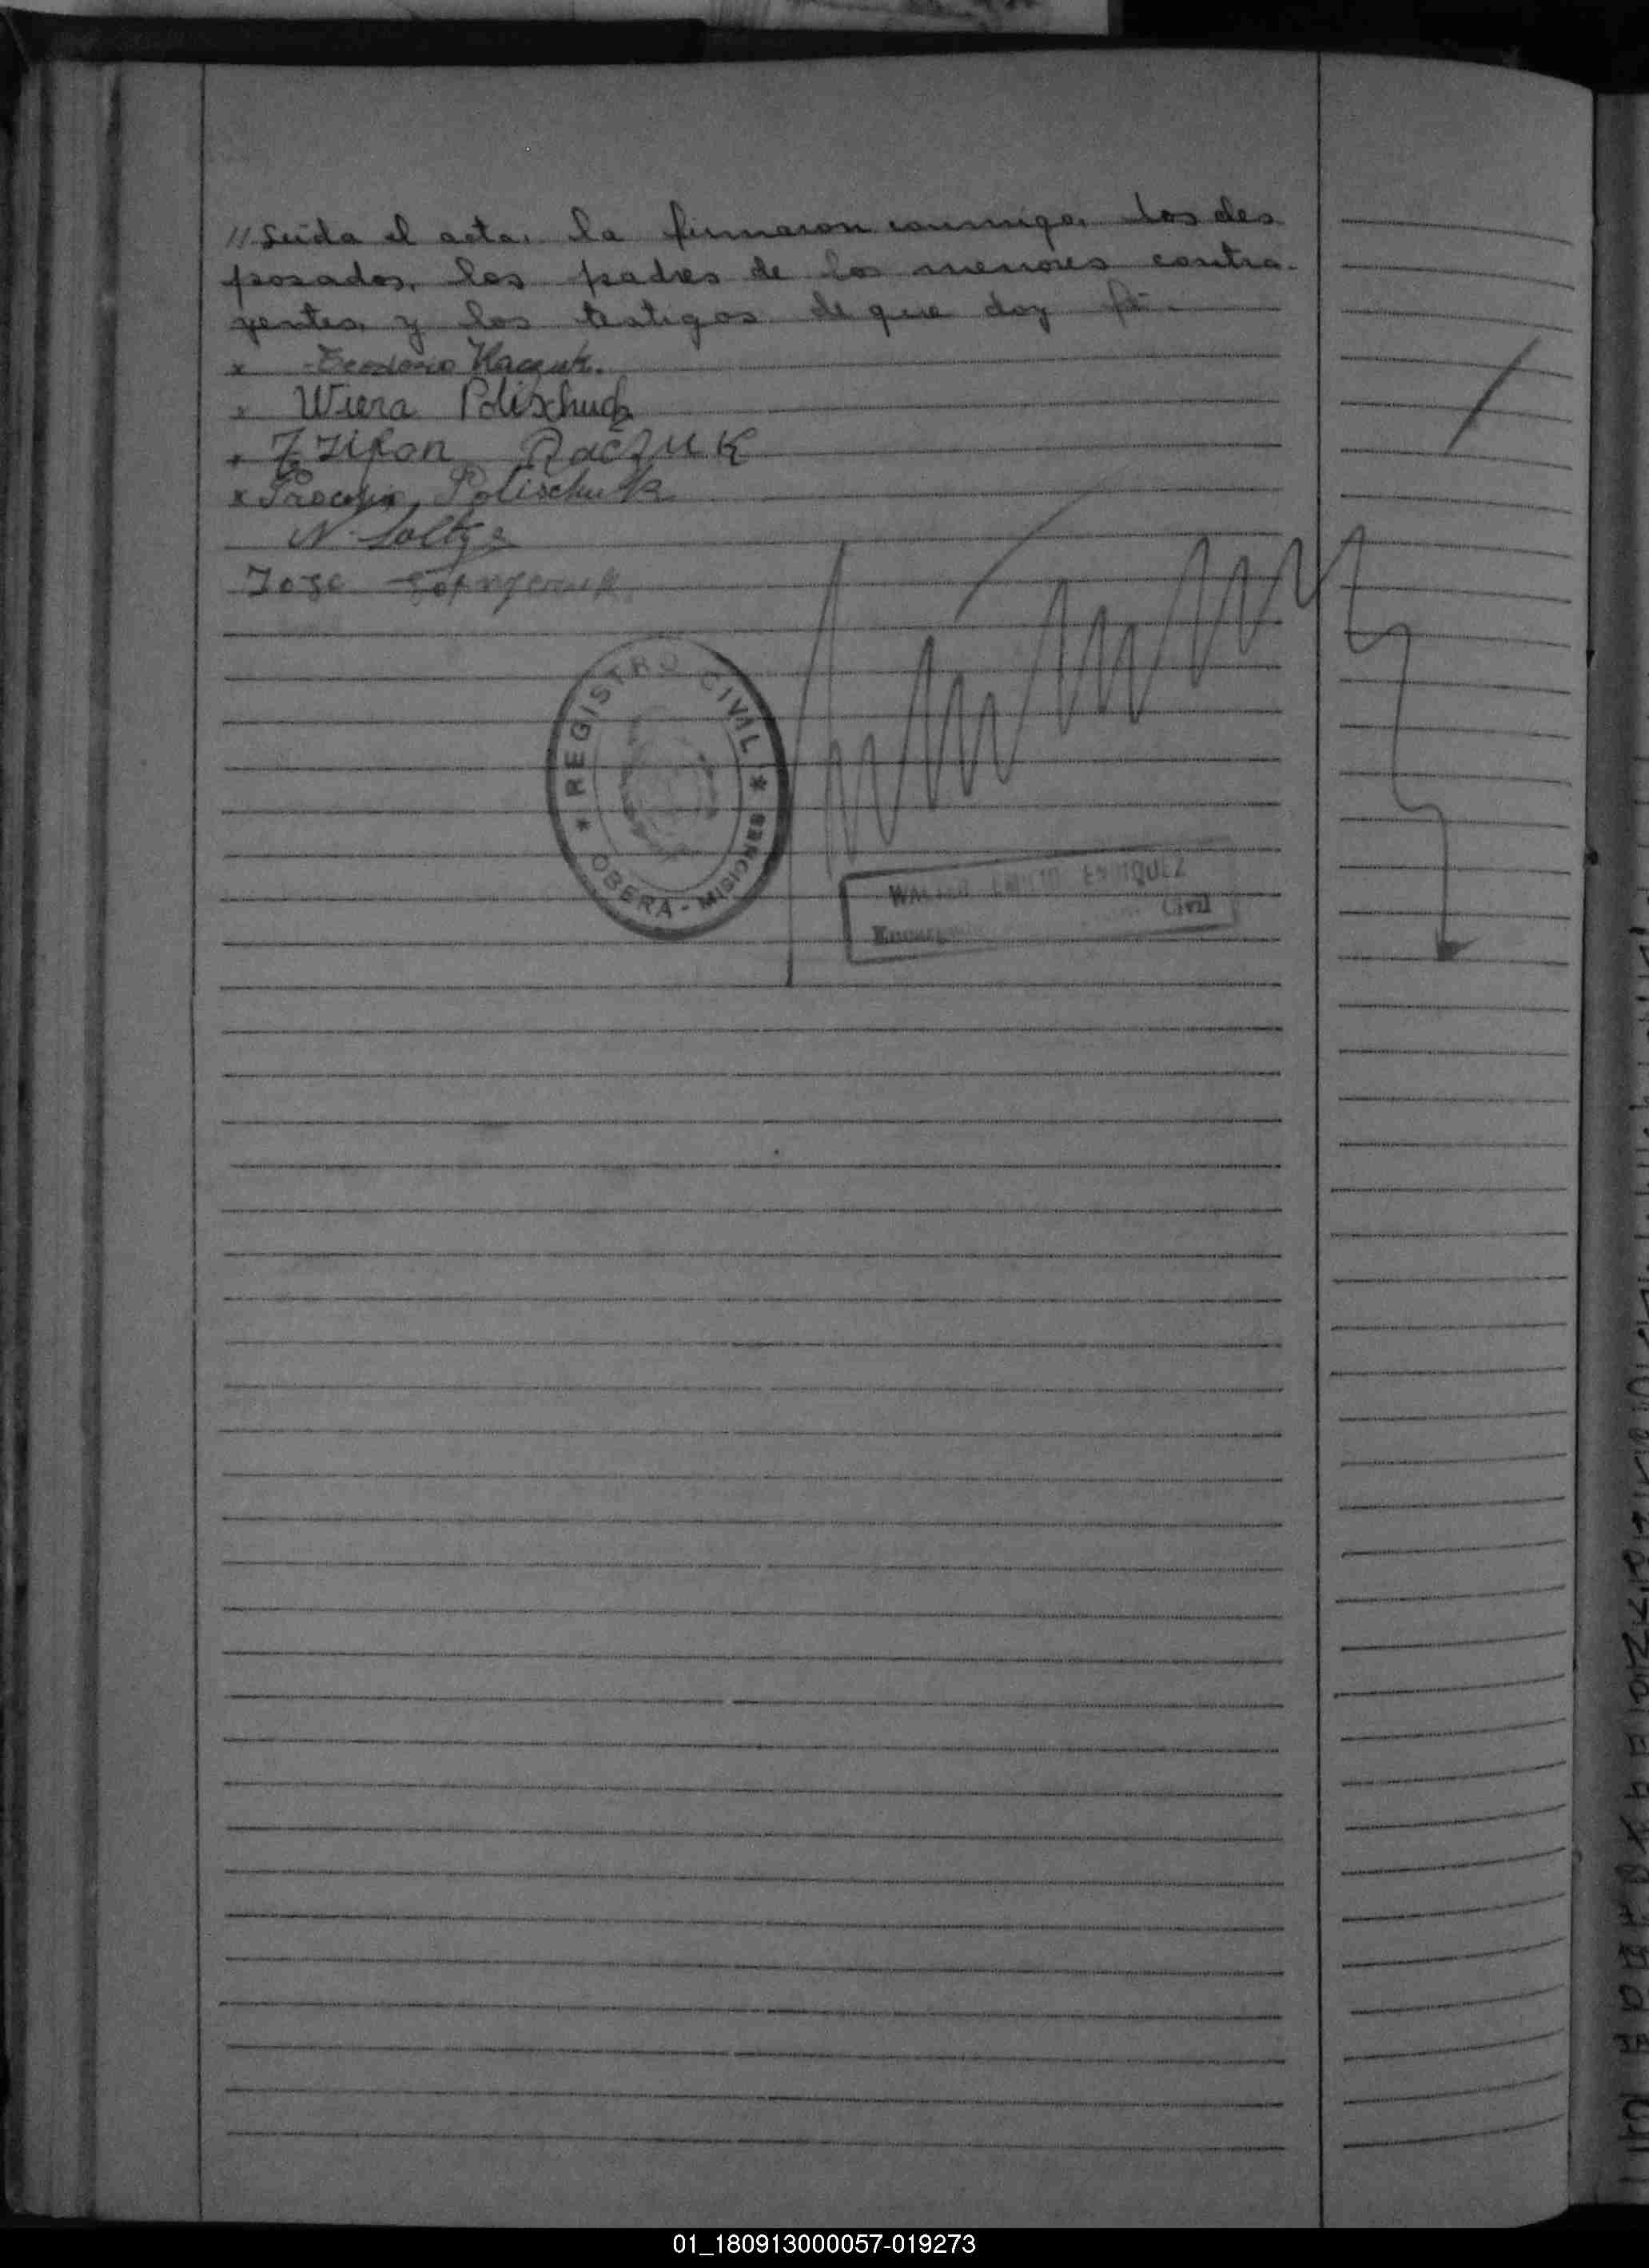 // Leida el acta, la firmaron conmigo, los des
posados, los padres de los menores contra-
yentes y los testigos de que doy fé.-
x
Wiera Polischuck
Raczuk
x Procopio Polischuk
N. Soltys
Jose
* REGISTRO CIVIL *
OBERA - MISIONES
WALTER EMILIO ENRIQUEZ
Civil
01_180913000057-019273